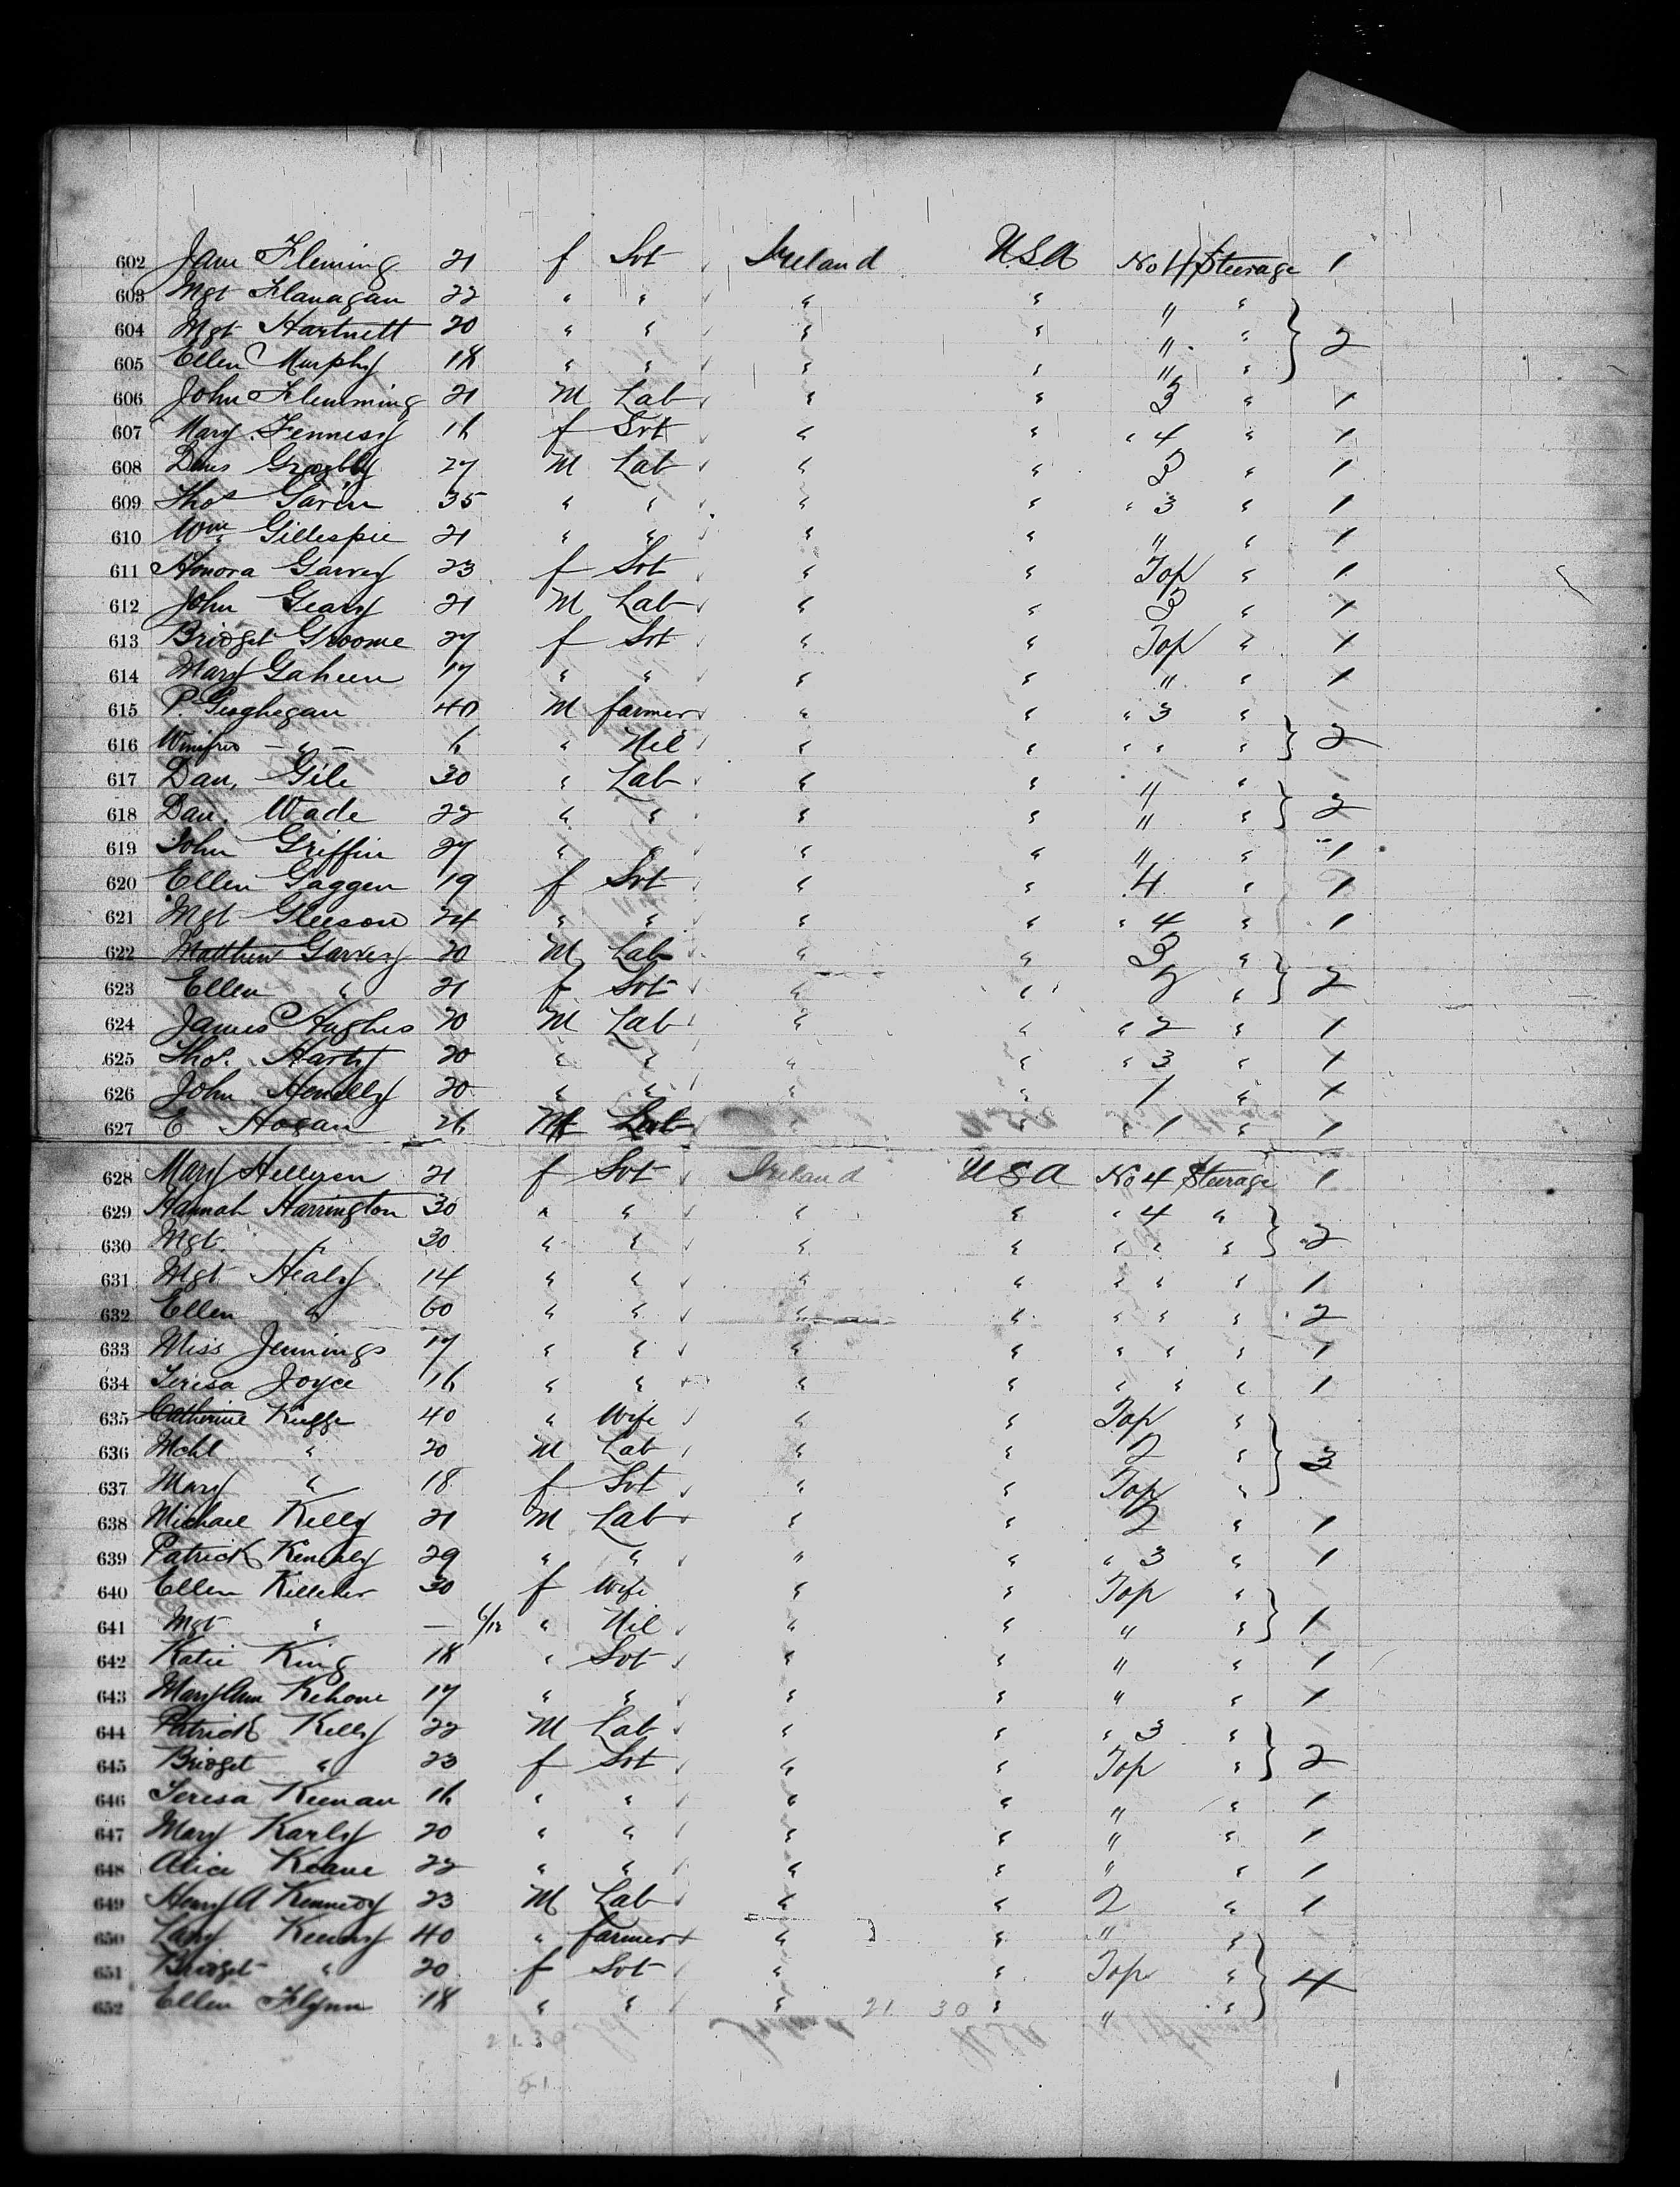 602 Jane Fleming 21 f Svt Ireland USA No 4 Steerage 1
603 Mgt Flanagan 22 " " " " " "
604 Mgt Hartnett 20 " " " " " " 2
605 Ellen Murphy 18 " " " " " "
606 John Flemming 21 M Lab " " 3 " 1
607 Mary Fennesy 16 f Svt " " " 4 " 1
608 27 M Lab " " 3 " 1
609 Thos 35 " " " " " 3 " 1
610 Wm Gillespie 21 " " " " " " 1
611 Honora Garvey 23 f Svt " " Top " 1
612 John Geary 21 M Lab " " 3 " 1
613 Bridget Groome 27 f Svt " " Top " 1
614 Mary Gaheen 17 " " " " " " 1
615 P. Geoghegan 40 M farmer " " " 3 "
616 Winifred — " — 6 " Nil " " " " " 2
617 Dan. Gile 30 " Lab " " " "
618 Dan. Wade 22 " " " " " " 2
619 John Griffin 27 " " " " " " 1
620 Ellen Gaggen 19 f Svt " " 4 " 1
621 Mgt Gleeson 24 " " " " " 4 " 1
622 Matthew Garvey 20 M Lab " " 3 "
623 Ellen " 21 f Svt " " " 2
624 James Hughes 20 M Lab " " " 2 " 1
625 Thos. Harty 20 " " " " " 3 " 1
626 John Henelly 20 " " " " 1 " 1
627 E Hogan 26 M " " " 1 " 1
628 Mary 21 f Svt Ireland USA No 4 Steerage 1
629 Hannah Harrington 30 " " " " " 4 "
630 Mgt. " 30 " " " " " " " 2
631 Mgt Healy 14 " " " " " " " 1
632 Ellen " 60 " " " " " " " 2
633 Miss Jennings 17 " " " " " " " 1
634 Teresa Joyce 16 " " " " " " " 1
635 Catherine 40 " Wife " " Top "
636 Mchl " 20 M Lab " " 2 " 3
637 Mary " 18 f Svt " " Top "
638 Michael Kelly 21 M Lab " " 2 " 1
639 Patrick Kenealy 29 " " " " " 3 " 1
640 Ellen Kelleher 30 f Wife " " Top "
641 Mgt " — 6/12 " Nil " " " " 1
642 Katie King 18 " Svt " " " " 1
643 Mary Ann Kehone 17 " " " " " " 1
644 Patrick Kelly 22 M Lab " " " 3 "
645 Bridget " 23 f Svt " " Top " 2
646 Teresa Keenan 16 " " " " " " 1
647 Mary Karly 20 " " " " " " 1
648 Alice Keane 22 " " " " " " 1
649 Henry A Kennedy 23 M Lab " " 2 " 1
650 Keeny 40 " farmer " " " "
651 Bridget " 20 f Svt " " Top " 4
652 Ellen Flynn 18 " " " 21 30 " " "
21 30
51